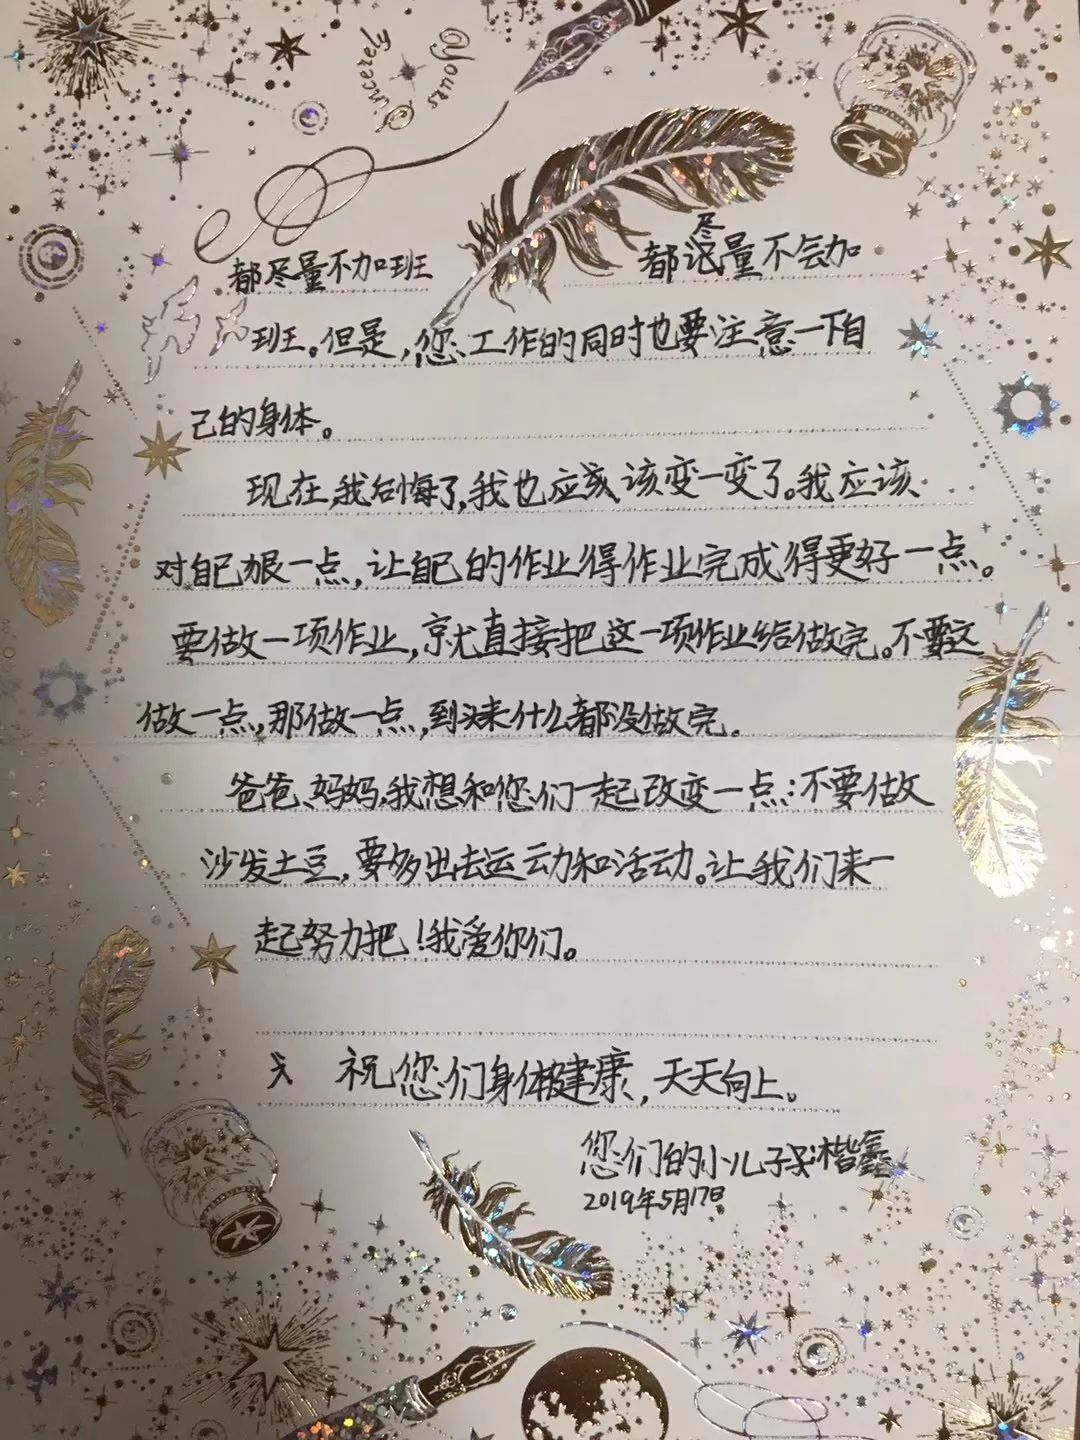 Yours Sincerely
都尽量不加班
尽
都记量不会加
班。但是，您工作的同时也要注意一下自
己的身体。
现在，我后悔了，我也应该变一变了。我应该
对自己狠一点，让自己的作业得作业完成得更好一点。
要做一项作业，就直接把这一项作业给做完。不要这
做一点，那做一点，到头来什么都没做完。
爸爸、妈妈，我想和您们一起改变一点：不要做
沙发土豆，要多出去运动和活动。让我们来一
起努力把！我爱你们。
祝您们身体健康，天天向上。
您们的小儿子
2019年5月17日